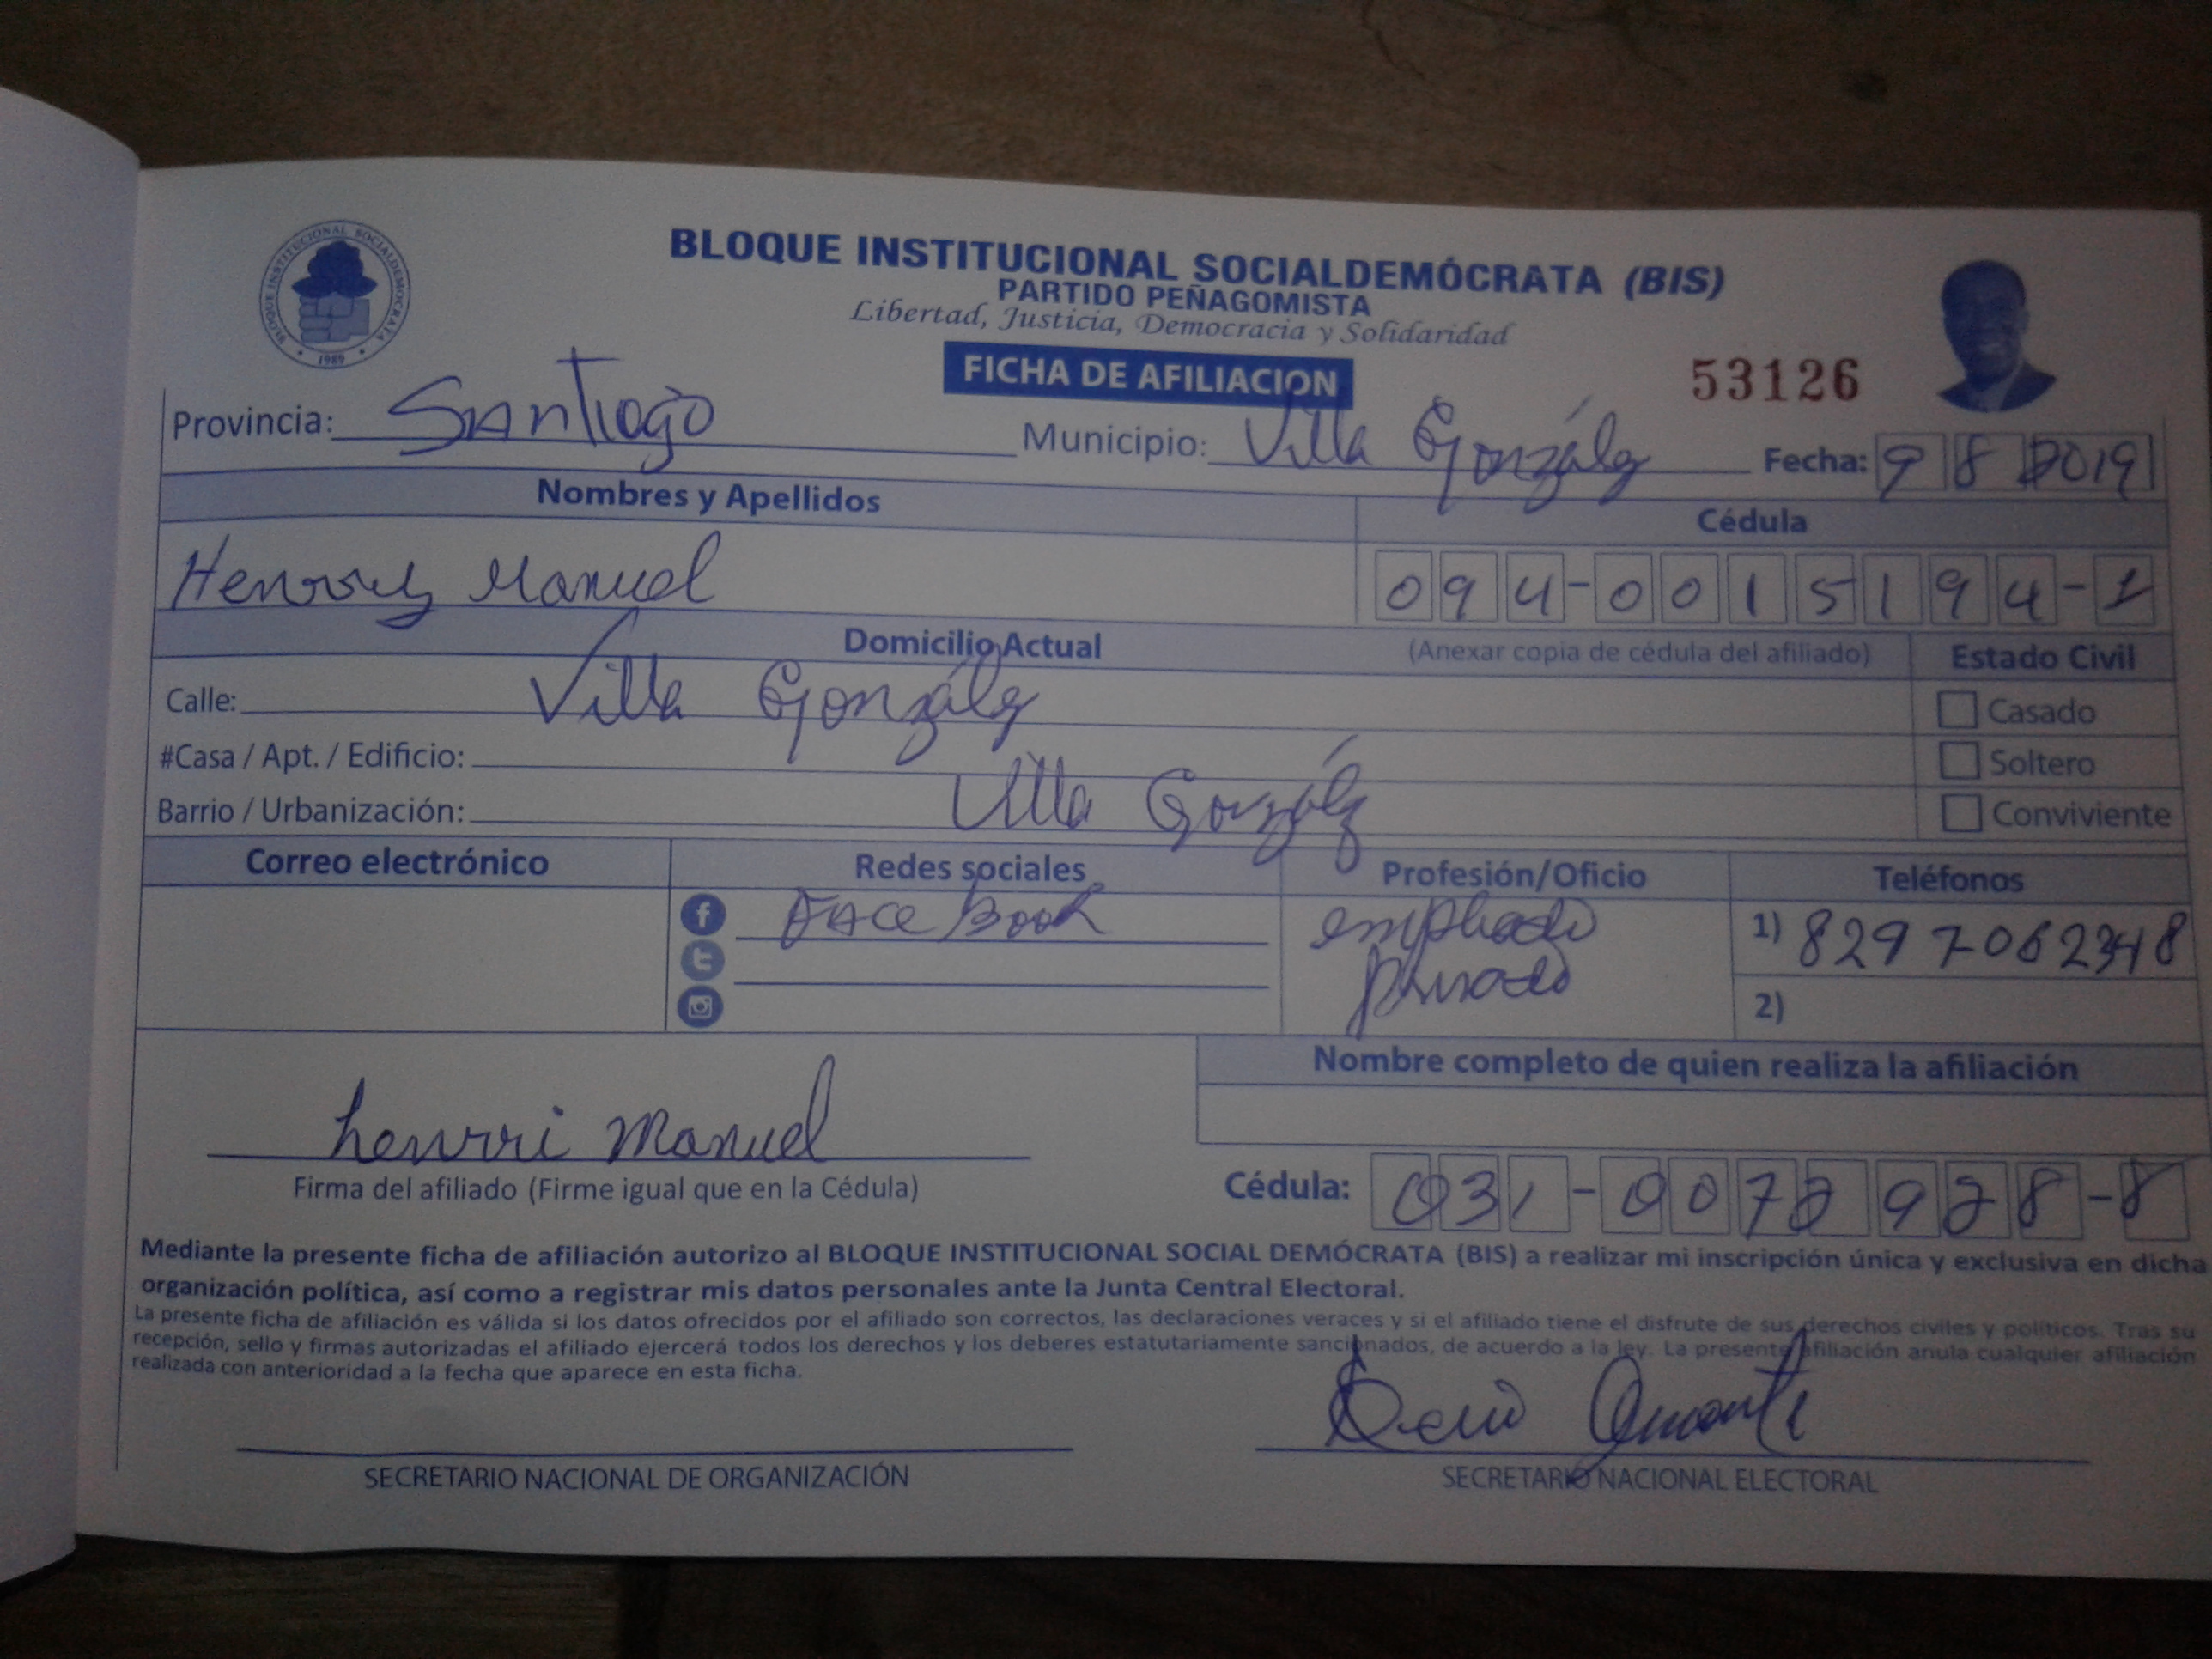 BLOQUE INSTITUCIONAL SOCIALDEMÓCRATA
1989
BLOQUE INSTITUCIONAL SOCIALDEMÓCRATA (BIS)
PARTIDO PEÑAGOMISTA
Libertad, Justicia, Democracia y Solidaridad
FICHA DE AFILIACION
53126
Provincia: Santiago Municipio: Villa González Fecha: 9 8 2019
Nombres y Apellidos Cédula
Henrry Manuel 094-0015194-1
Domicilio Actual (Anexar copia de cédula del afiliado) Estado Civil
Calle: Villa González Casado
#Casa / Apt. / Edificio: Soltero
Barrio / Urbanización: Villa González Conviviente
Correo electrónico Redes sociales Profesión/Oficio Teléfonos
Face Book empleado 1) 829 706 2348
privado
2)
Nombre completo de quien realiza la afiliación
henrri manuel
Firma del afiliado (Firme igual que en la Cédula) Cédula: 031-0072928-8
Mediante la presente ficha de afiliación autorizo al BLOQUE INSTITUCIONAL SOCIAL DEMÓCRATA (BIS) a realizar mi inscripción única y exclusiva en dicha
organización política, así como a registrar mis datos personales ante la Junta Central Electoral.
La presente ficha de afiliación es válida si los datos ofrecidos por el afiliado son correctos, las declaraciones veraces y si el afiliado tiene el disfrute de sus derechos civiles y políticos. Tras su
recepción, sello y firmas autorizadas el afiliado ejercerá todos los derechos y los deberes estatutariamente sancionados, de acuerdo a la ley. La presente afiliación anula cualquier afiliación
realizada con anterioridad a la fecha que aparece en esta ficha.
SECRETARIO NACIONAL DE ORGANIZACIÓN SECRETARIO NACIONAL ELECTORAL